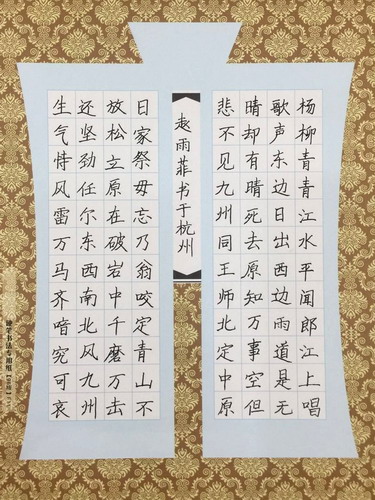 杨柳青青江水平闻郎江上唱
歌声东边日出西边雨道是无
晴却有晴死去原知万事空但
悲不见九州同王师北定中原
赵雨菲书于杭州
日家祭毋忘乃翁咬定青山不
放松立原在破岩中千磨万击
还坚劲任尔东西南北风九州
生气恃风雷万马齐喑究可哀
硬笔书法专用纸